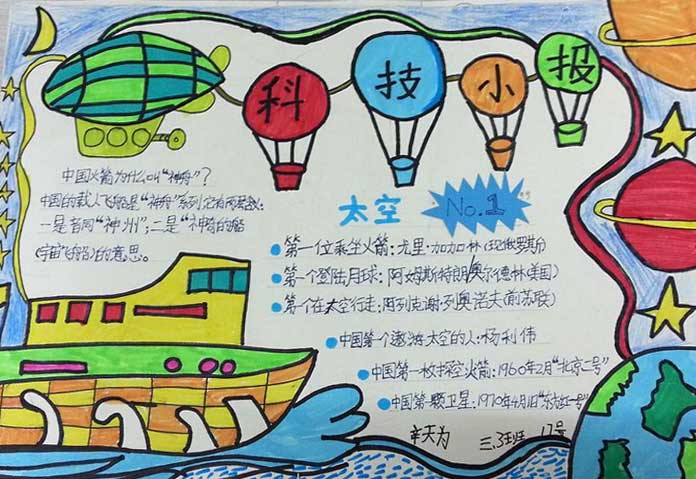 科技小报
中国火箭为什么叫“神舟”？
中国的载人飞船是“神舟”系列，它有两层意：
一是音同“神州”；二是“神奇的船
（宇宙飞船）的意思。
太空 No.1
第一位乘坐火箭：尤里·加加林（现俄罗斯）
第一个登陆月球：阿姆斯特朗/奥尔德林（美国）
第一个在太空行走：阿列克谢·列奥诺夫（前苏联）
中国第一个遨游太空的人：杨利伟
中国第一枚探空火箭：1960年2月“北京二号”
中国第一颗卫星：1970年4月
三、3班 17号